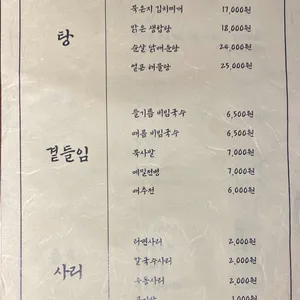 탕
묵은지 김치찌개 17,000원
맑은 생합탕 18,000원
순살 닭매운탕 24,000원
얼큰 해물탕 25,000원
곁들임
들기름 비빔국수 6,500원
여름 비빔국수 6,500원
묵사발 7,000원
메밀전병 7,000원
배추전 6,000원
사리
라면사리 2,000원
칼국수사리 2,000원
우동사리 2,000원